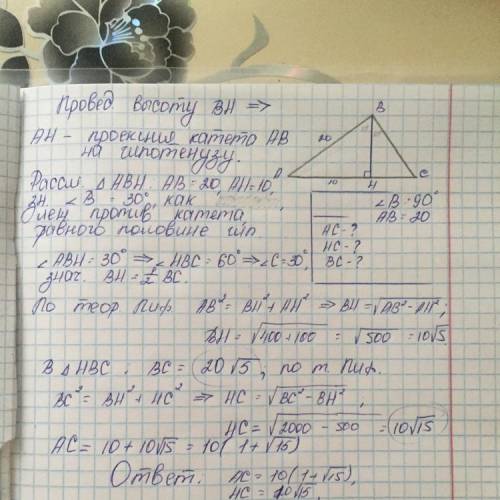 Провед. высоту BH ⇒
AH - проекция катета AB
на гипотенузу.
Рассм. △ABH. AB = 20, AH = 10,
зн. ∠B = 30°, как
леж против катета
равного половине гип
∠ABH = 30° ⇒ ∠HBC = 60° ⇒ ∠C = 30°,
знач. BH = 1/2 BC.
B
20
A
10
H
C
∠B = 90°
AB = 20
AC - ?
HC - ?
BC - ?
По теор. Пиф AB² = BH² + AH² ⇒ BH = √AB² - AH²;
BH = √400 + 100 = √500 = 10√5.
В △HBC: BC = 20√5, по т. Пиф.
BC² = BH² + HC² ⇒ HC = √BC² - BH²,
HC = √2000 - 500 = 10√15
AC = 10 + 10√15 = 10(1 + √15)
Ответ. AC = 10(1 + √15),
HC = 10√15,